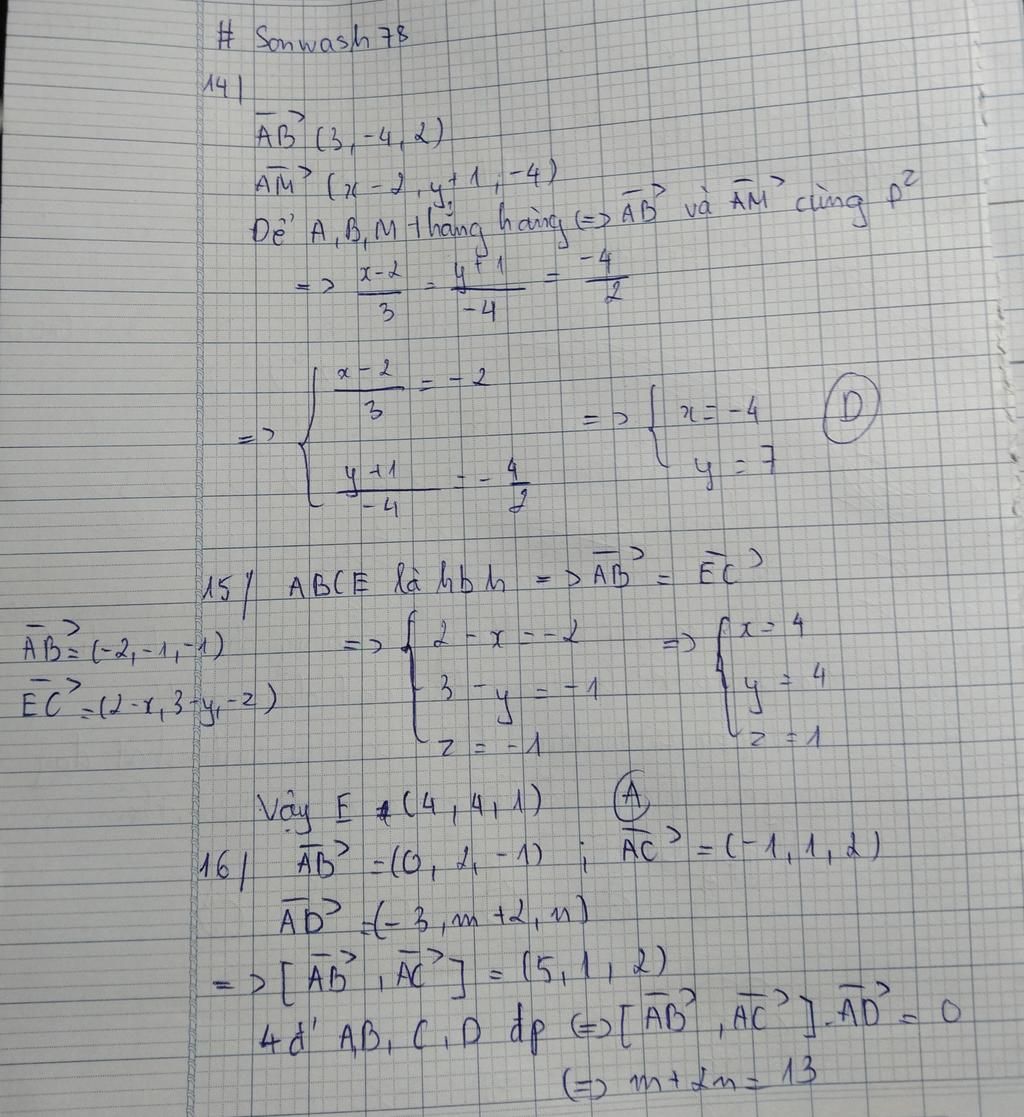 # Sonwash78
14)
AB→ (3, -4, 2)
AM→ (x-2, y+1, -4)
Để A, B, M thẳng hàng <=> AB→ và AM→ cùng p²
=> (x-2)/3 = (y+1)/-4 = -4/2
=> { (x-2)/3 = -2 => { x = -4 (D)
(y+1)/-4 = -4/2 y = 7
15) ABCE là hbh => AB→ = EC→
AB→ = (-2, -1, -1) => { 2 - x = -2 => { x = 4
EC→ = (2-x, 3-y, -z) 3 - y = -1 y = 4
z = -1 z = 1
Vậy E (4, 4, 1) (A)
16) AB→ = (0, 2, -1) ; AC→ = (-1, 1, 2)
AD→ = (-3, m+2, n)
=> [AB→, AC→] = (5, 1, 2)
4 đ' A,B, C, D đp <=> [AB→, AC→].AD→ = 0
<=> m + 2n = 13